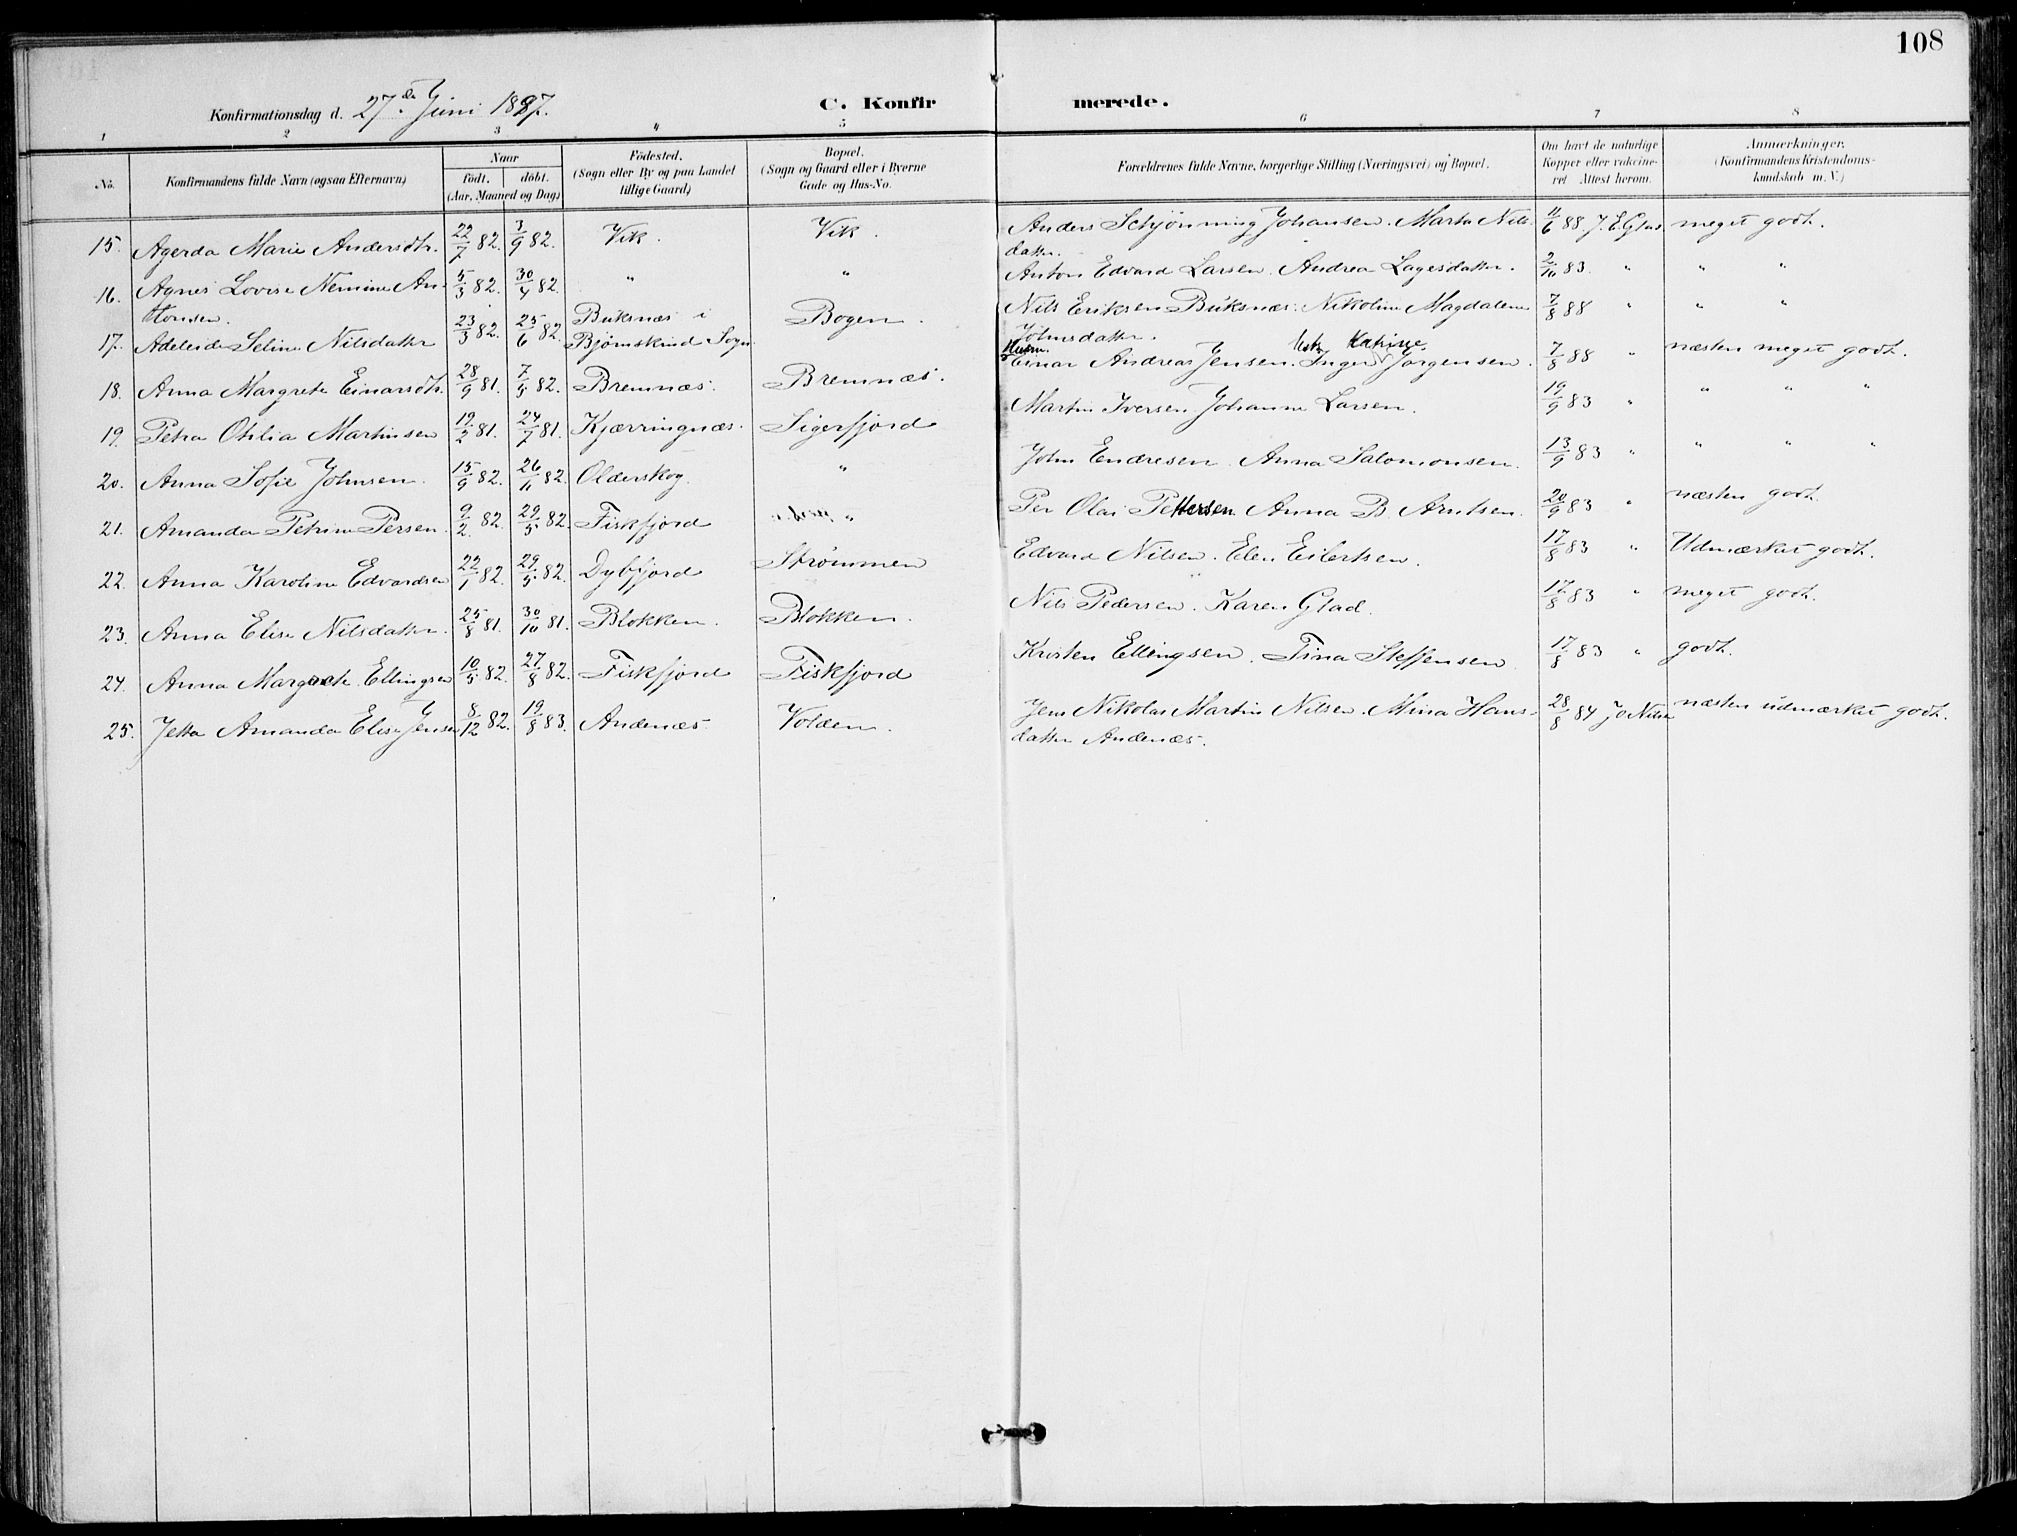 108
Konfirmationsdag d. 27de Juni 1897.
C. Konfirmerede.
1 2 3 4 5 6 7 8
No.
Konfirmandens fulde Navn (ogsaa Efternavn)
Naar
født. døbt.
(Aar, Maaned og Dag)
Födested.
(Sogn eller By og paa Landet
tillige Gaard)
Bopæl.
(Sogn og Gaard eller i Byerne
Gade og Hus-No.
Forældrenes fulde Navne, borgerlige Stilling (Næringsvei) og Bopæl.
Om havt de naturlige
Kopper eller vakcine-
ret Attest herom.
Anmerkninger.
(Konfirmandens Kristendoms-
kundskab m. V.)
15. Agerda Marie Andersdtr. 22/7 82. 3/9 82. Vik. Vik. Anders Schjønning Johansen. Marta Nils- 11/6 88. J. E. Glad meget godt.
datter.
16. Agnes Lovise Nemine An- 5/3 82. 30/4 82. " " Anton Edvard Larsen. Andrea Lagesdatter. 2/10 83. " " "
tonsen.
17. Adeleide Seline Nilsdatter 23/3 82. 25/6 82. Buksnæs i Bogen. Nils Eriksen Buksnæs. Nikoline Magdalene 7/8 88 " " "
Bjørnskind Sogn. Johnsdatter.
18. Anna Margrete Einarsdtr. 28/9 81. 7/5 82. Bremnæs. Bremnæs. Einar Andreas Jensen. Inger Katrine Jørgensen. 7/8 88 " næsten meget godt.
19. Petra Otilia Martinsen 19/2 81. 24/7 81. Kjærringnæs. Sigerfjord Martin Iversen Johanna Larsen. 19/9 83 " " " "
20. Anna Sofie Johnsen. 15/9 82. 26/11 82. Olderskog. " John Endresen. Anna Salomonsen. 13/9 83 " " " "
21. Amanda Petrine Persen. 9/2. 82. 29/5 82. Fiskfjord " Per Olai Pettersen Anna B. Arntsen. 20/9 83 " næsten godt.
22. Anna Karoline Edvardsen 22/1 82. 29/5 82. Dybfjord Strømmen Edvard Nilsen. Elen Eilertsen. 17/8 83 " Udmærket godt.
23. Anna Elise Nilsdatter. 25/8 81. 30/10 81. Blokken. Blokken. Nils Pedersen. Karen Glad. 17/8 83 " meget godt.
24. Anna Margrete Ellingsen 10/5 82. 27/8 82. Fiskfjord Fiskfjord Kristen Ellingsen. Tina Steffensen. 17/8 83 " godt.
25. Jetta Amanda Elise Jensen 8/12 82. 19/8 83. Andenæs. Volden. Jens Nikolai Martin Nilsen. Mina Hans- 28/8 84 Jo Nilsen næsten udmærket godt.
datter Andenæs.